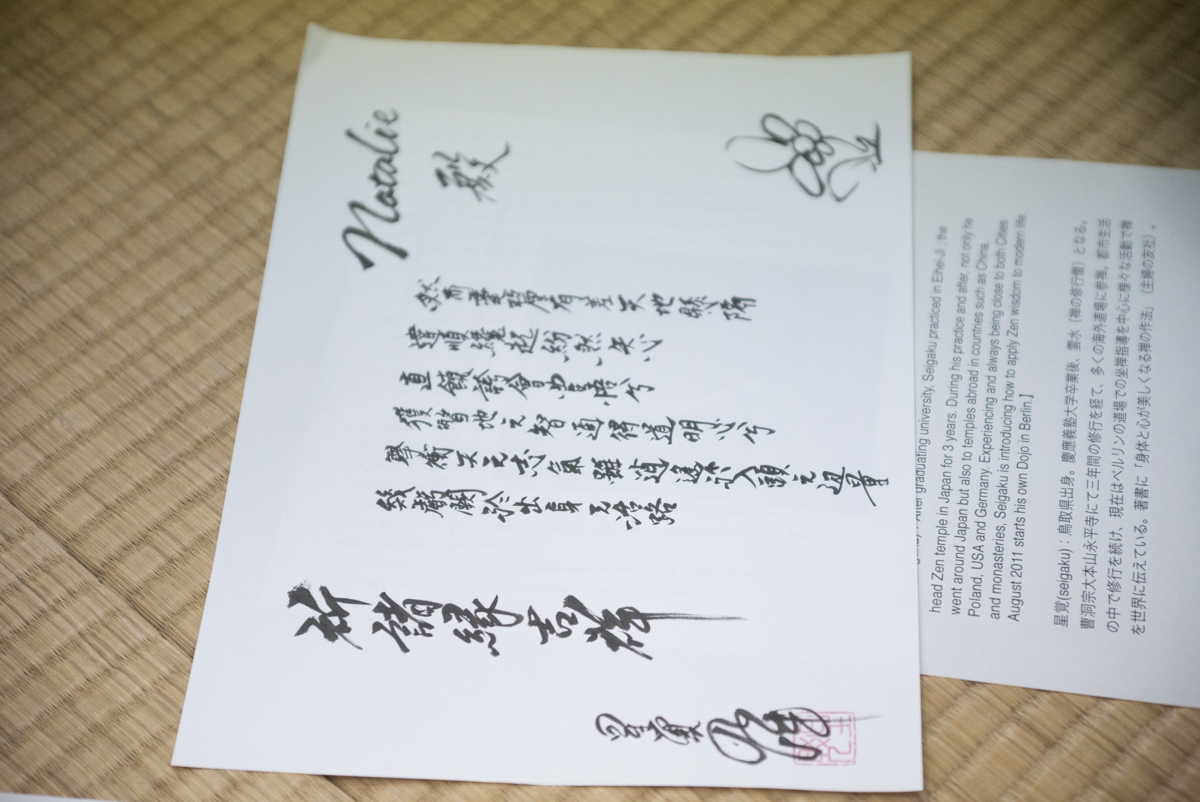 Natalie 殿
然而毫釐有差天地懸隔
違順纔起紛然失心
直饒誇會豊悟兮
獲瞥地之智通得道明心兮
擧衝天之志氣雖逍遥於入頭之邊量
幾虧闕於出身之活路
祈諸縁吉祥
星覚
After graduating university, Seigaku practiced in Eihei-Ji ; the
head Zen temple in Japan for 3 years. During his practice and after, not only he
went around Japan but also to temples abroad in countries such as China,
Poland, USA and Germany. Experiencing and always being close to both Cities
and monasteries, Seigaku is introducing how to apply Zen wisdom to modern life.
August 2011 starts his own Dojo in Berlin.]
星覚(seigaku)：鳥取県出身。慶應義塾大学卒業後、雲水（禅の修行僧）となる。
曹洞宗大本山永平寺にて三年間の修行を経て、多くの海外道場に参禅。都市生活
の中で修行を続け、現在はベルリンの道場での坐禅指導を中心に様々な活動で禅
を世界に伝えている。著書に「身体と心が美しくなる禅の作法」（主婦の友社）。